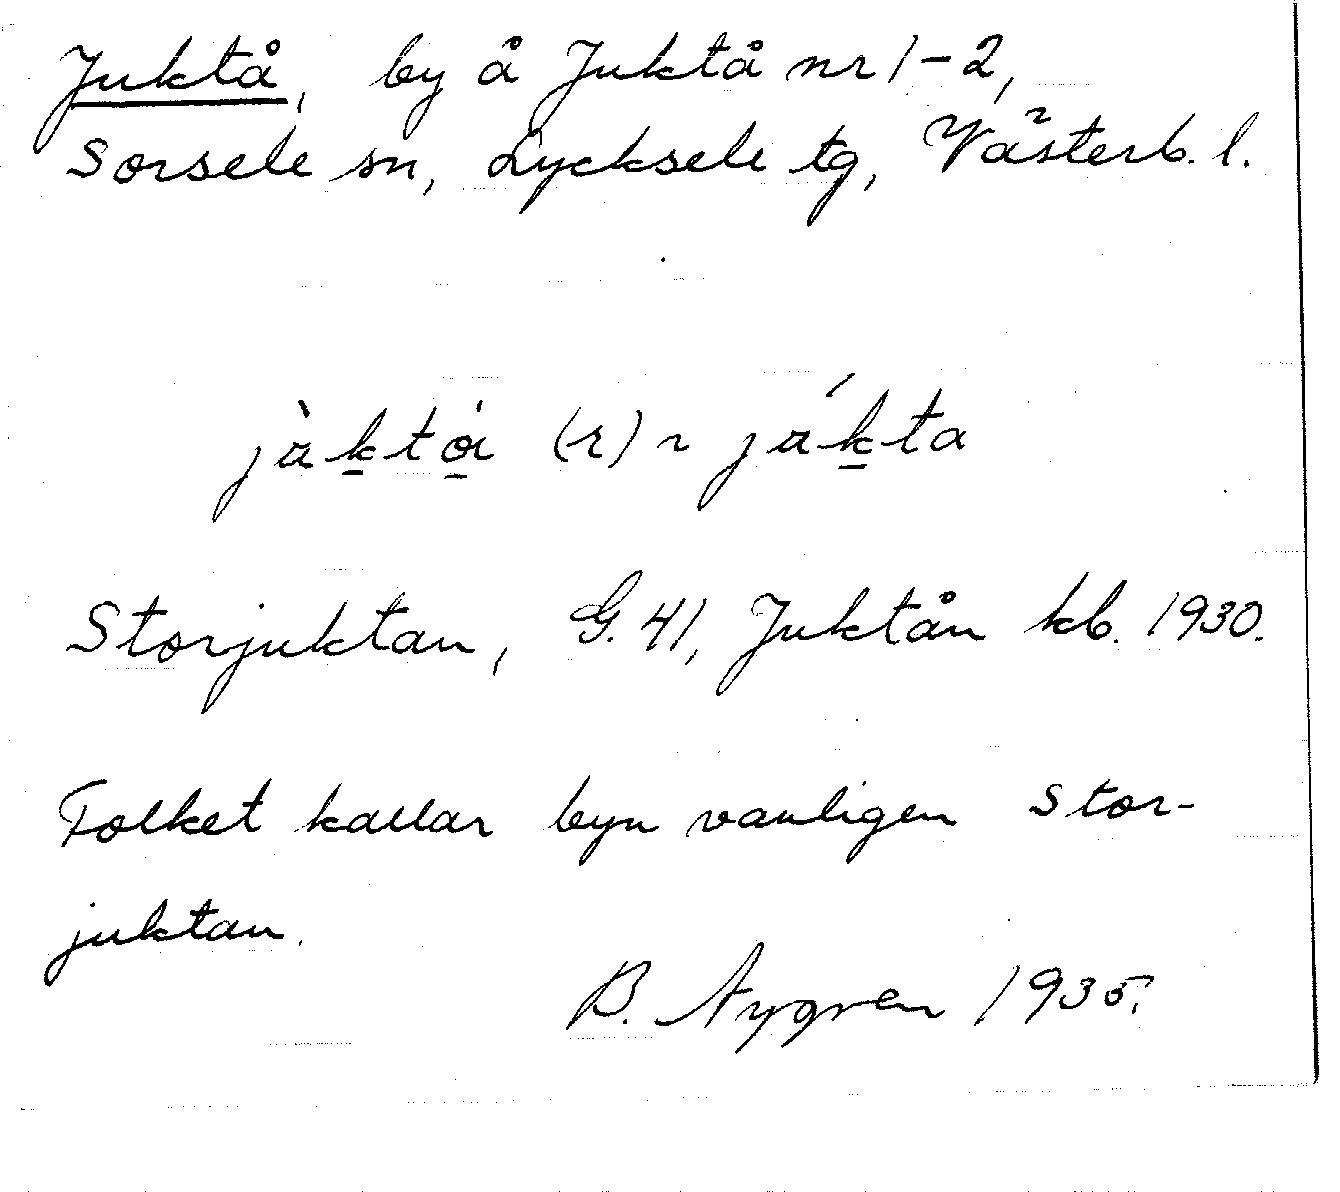 Juktå, by å Juktå nr 1-2,
Sorsele sn, Lycksele tg, Västerb. l.
Storjuktan, G. 41, Juktån kb. 1930.
Folket kallar byn vanligen Stor-
juktan.
B. Nygren 1935.